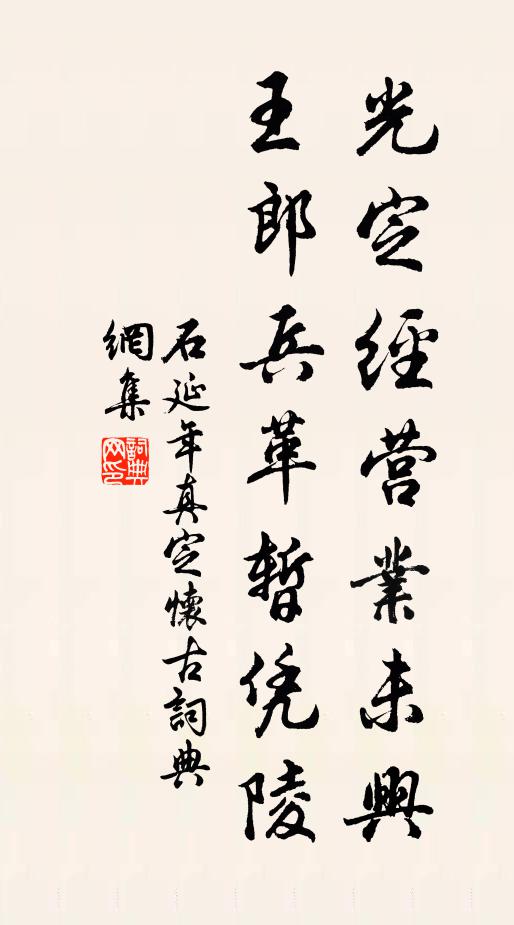 光定經營業未興
王郎兵革暫凭陵
石延年真定懷古詞典
網集
詞典網印